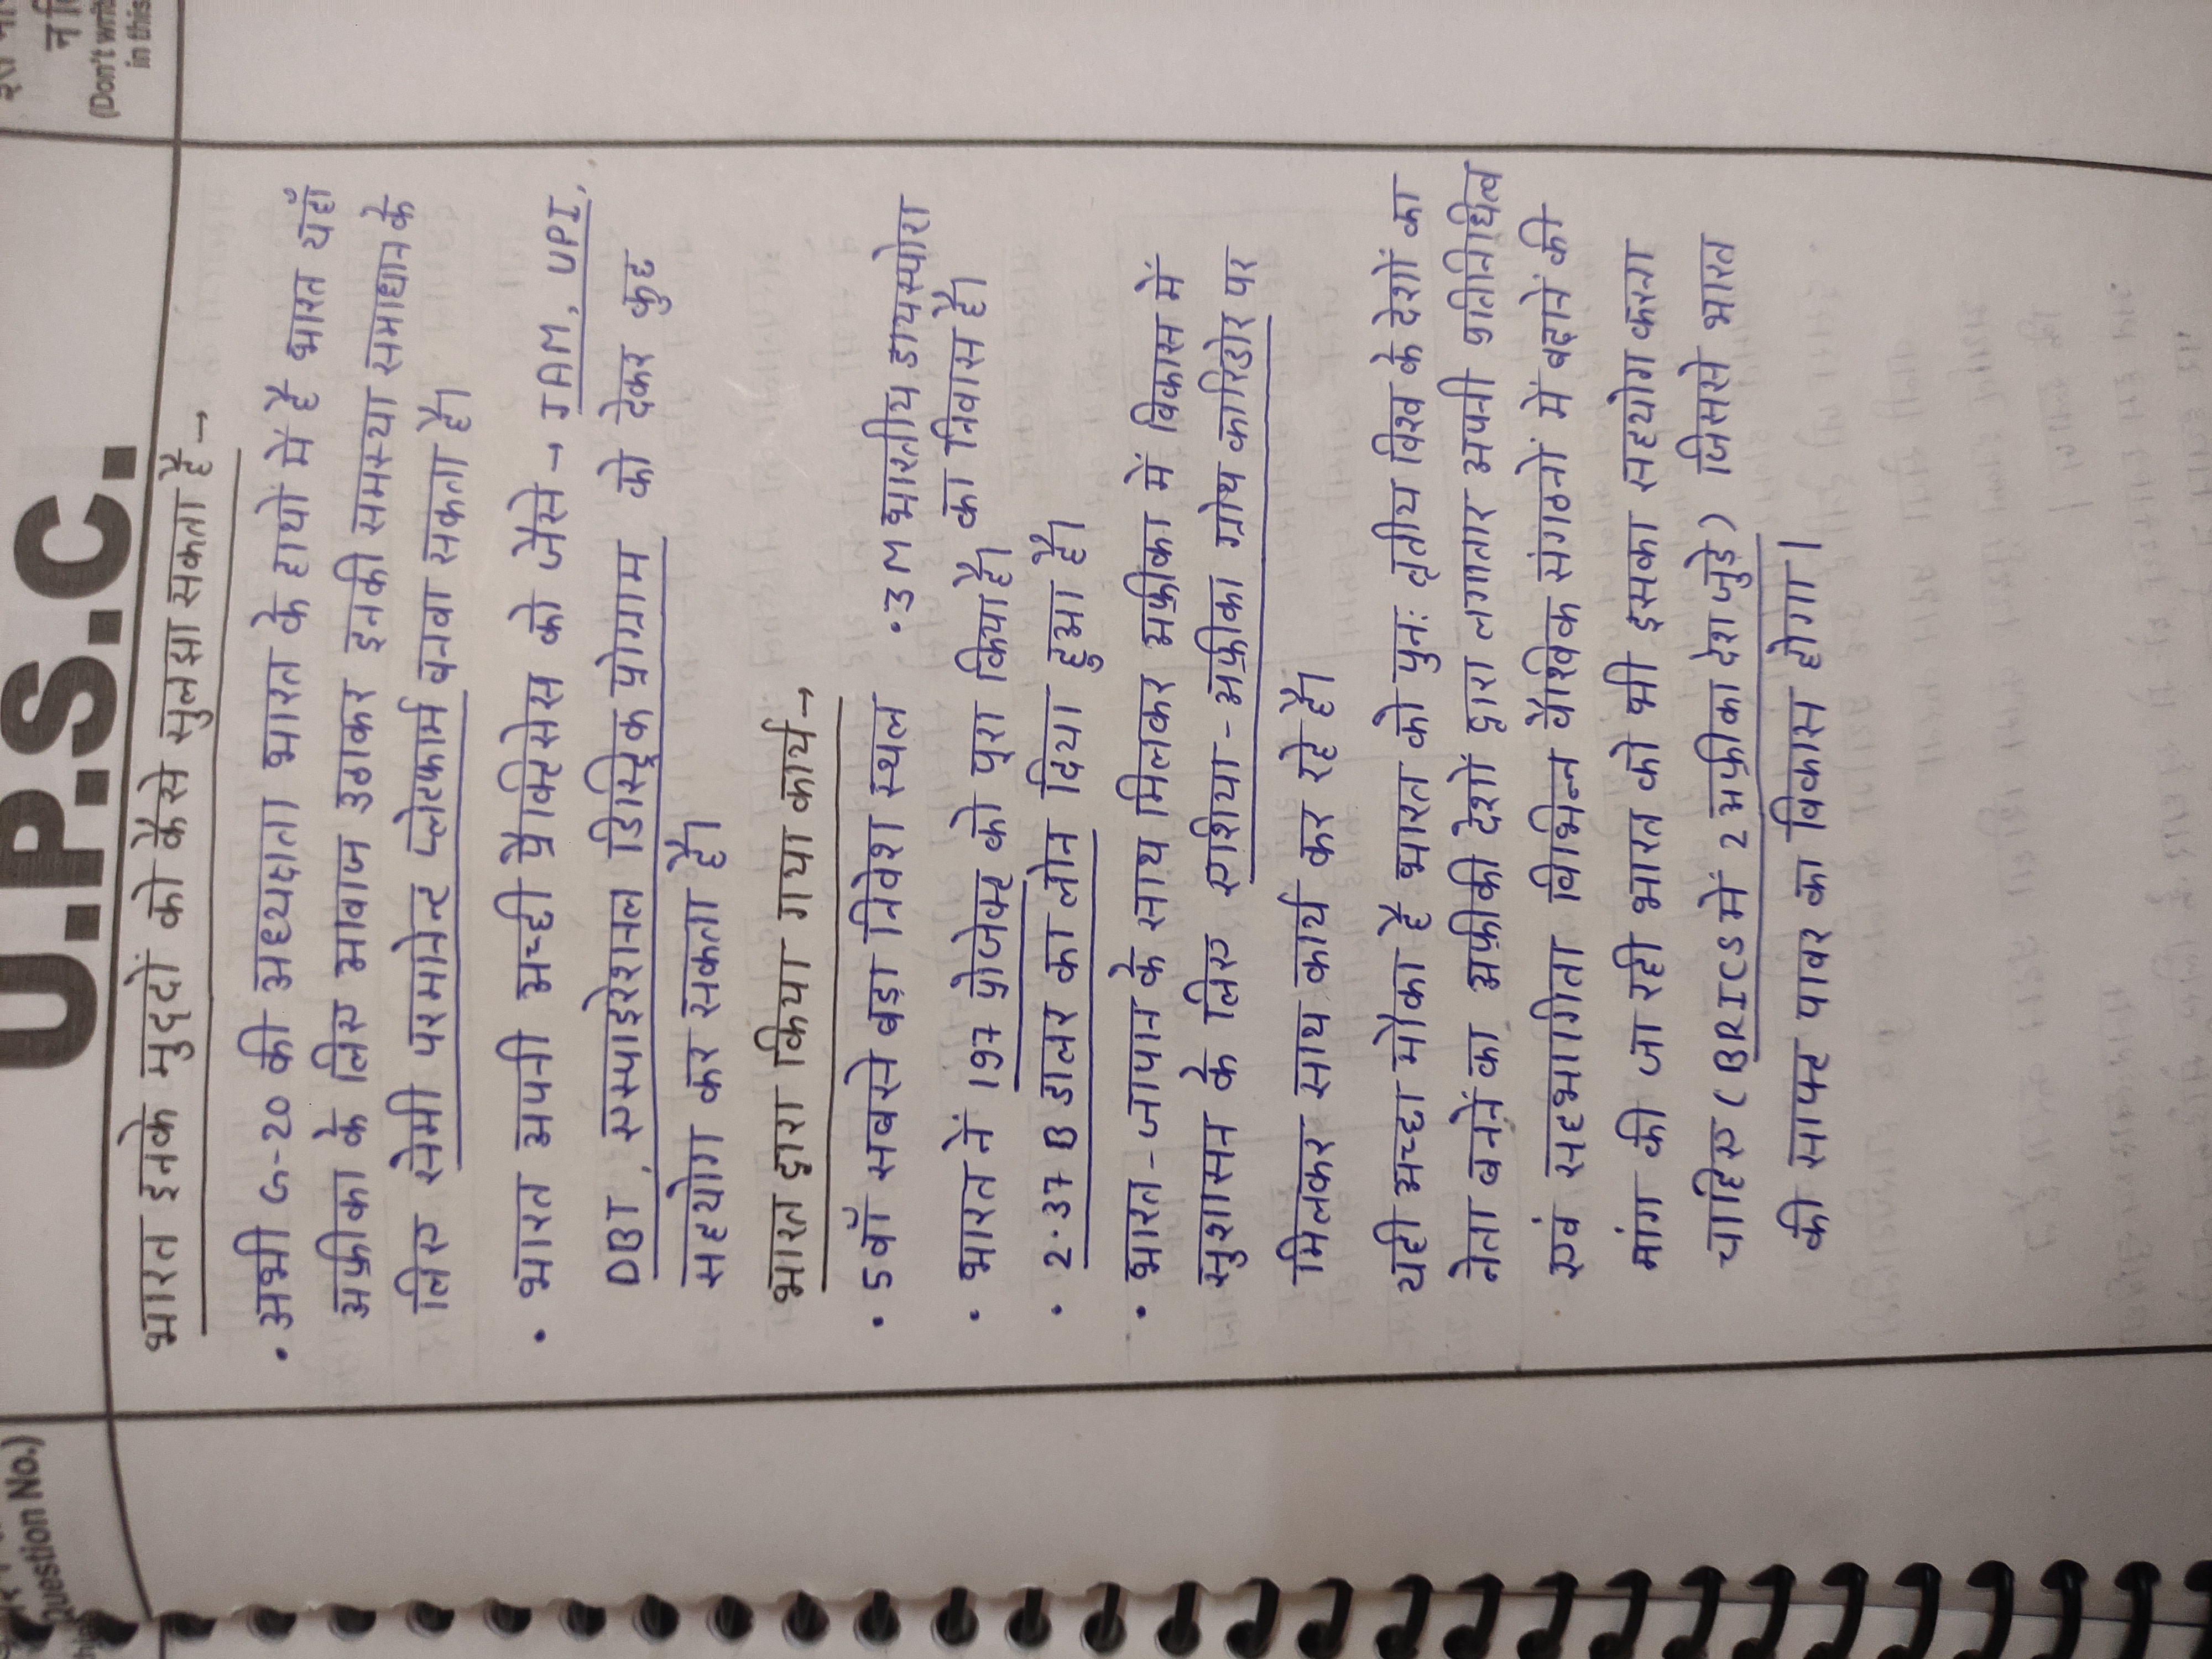 U.P.S.C.
(Don't write
in this
Question No.)
भारत इनके मुद्दों को कैसे सुलझा सकता है →
• अभी G-20 की अध्यक्षता भारत के हाथों में है भारत यहाँ
अफ्रीका के लिए आवाज उठाकर इनकी समस्या समाधान के
लिए सेमी परमानेन्ट प्लेटफार्म बनवा सकता है।
• भारत अपनी अच्छी प्रैक्टिसेस को जैसे → JAM, UPI,
DBT, एस्पाइरेशनल डिस्ट्रिक प्रोग्राम को देकर कुछ
सहयोग कर सकता है।
भारत द्वारा किया गया कार्य →
• 5वाँ सबसे बड़ा निवेश स्थल • 3M भारतीय डायस्पोरा
का निवास है।
• भारत नें 197 प्रोजेक्ट को पूरा किया है।
• 2.37 B डालर का लोन दिया हुआ है।
• भारत - जापान के साथ मिलकर अफ्रीका में विकास में
सुशासन के लिए एशिया - अफ्रीका ग्रोथ कारिडोर पर
मिलकर साथ कार्य कर रहे है।
यही अच्छा मौका है भारत को पुनः तृतीय विश्व के देशों का
नेता बननें का अफ्रीकी देशों द्वारा लगातार अपनी प्रतिनिधित्व
एवं सहभागिता विभिन्न वैश्विक संगठनों में बढ़ानें की
मांग की जा रही भारत को भी इसका सहयोग करना
चाहिए (BRICS में 2 अफ्रीका देश जुड़े) जिससे भारत
की साफ्ट पावर का विकास होगा।